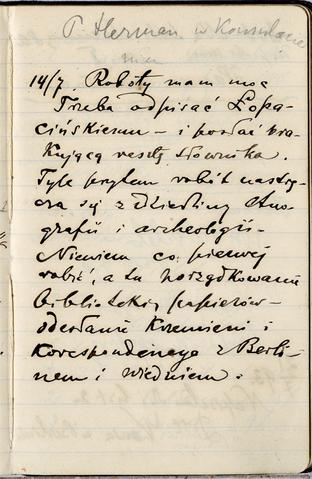 P. Herman w Konsulacie
14/7. Roboty mam moc
Trzeba odpisać Łopa-
cińskiemu – i posłać bra-
kującą resztę słownika.
Tyle przytem robót nastrę-
cza się z dziedziny etno-
grafii i archeologii –
Niewiem co pierwej
robić, a tu porządkowanie
biblioteki, papierów –
odesłanie Krzemieni i
korespondencya z Berli-
nem i Wiedniem.